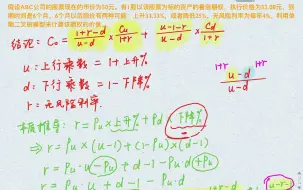 假设ABC公司的股票现在的市价为50元。有1股以该股票为标的资产的看涨期权，执行价格为52.08元，到
期时间是6个月。6个月以后股价有两种可能：上升33.33%，或者降低25%。无风险利率为每年4%，利用单
期二叉树模型来计算该期权的价值。
结论：C₀ = (1+r-d)/(u-d) × Cu/(1+r) + (u-1-r)/(u-d) × Cd/(1+r)
u：上行乘数 = 1+上升%
d：下行乘数 = 1-下降%
r：无风险利率.
1+r 1+r
u-d
u-d
r = Pu × 上升% + Pd × (-下降%)
⇒ r = Pu × (u-1) + (1-Pu) × (d-1)
⇒ r = Pu·u - Pu + d - 1 - Pu·d + Pu
⇒ r = Pu·u + d - 1 - Pu·d
u-r-1